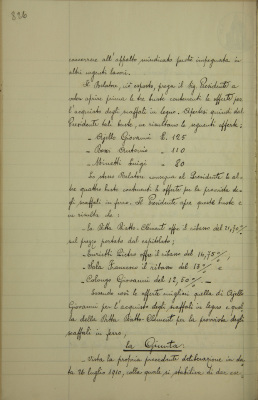 826
concorrere all'appalto indicato perché impegnata in
altri urgenti lavori.
Il Relatore, ciò esposto, prega il Sig. Presidente a
voler aprire prima le tre buste contenenti le offerte per
l'acquisto degli scaffali in legno. Apertesi quindi dal
Presidente tali buste, ne risultano le seguenti offerte:
- Ajello Giovanni L. 125
- Bossi Antonio - 110
- Luigi - 80
Lo stesso Relatore consegna al Presidente le al-
tre quattro buste contenenti le offerte per la provvista de-
gli scaffali in ferro. Il Presidente apre queste buste e
ne risulta che:
- La Ditta offre il ribasso del
sul prezzo portato dal capitolato;
- Pietro offre il ribasso del 16,75 %;
- Sala Francesco il ribasso del 18 %
- Calongo Giovanni del 12,50 %
Essendo così le offerte migliori quella di Ajello
Giovanni per l'acquisto degli scaffali in legno e quel-
la della Ditta per la provvista degli
scaffali in ferro;
La Giunta
Vista la propria precedente deliberazione in da-
ta 26 luglio 1910, colla quale si stabiliva di dar